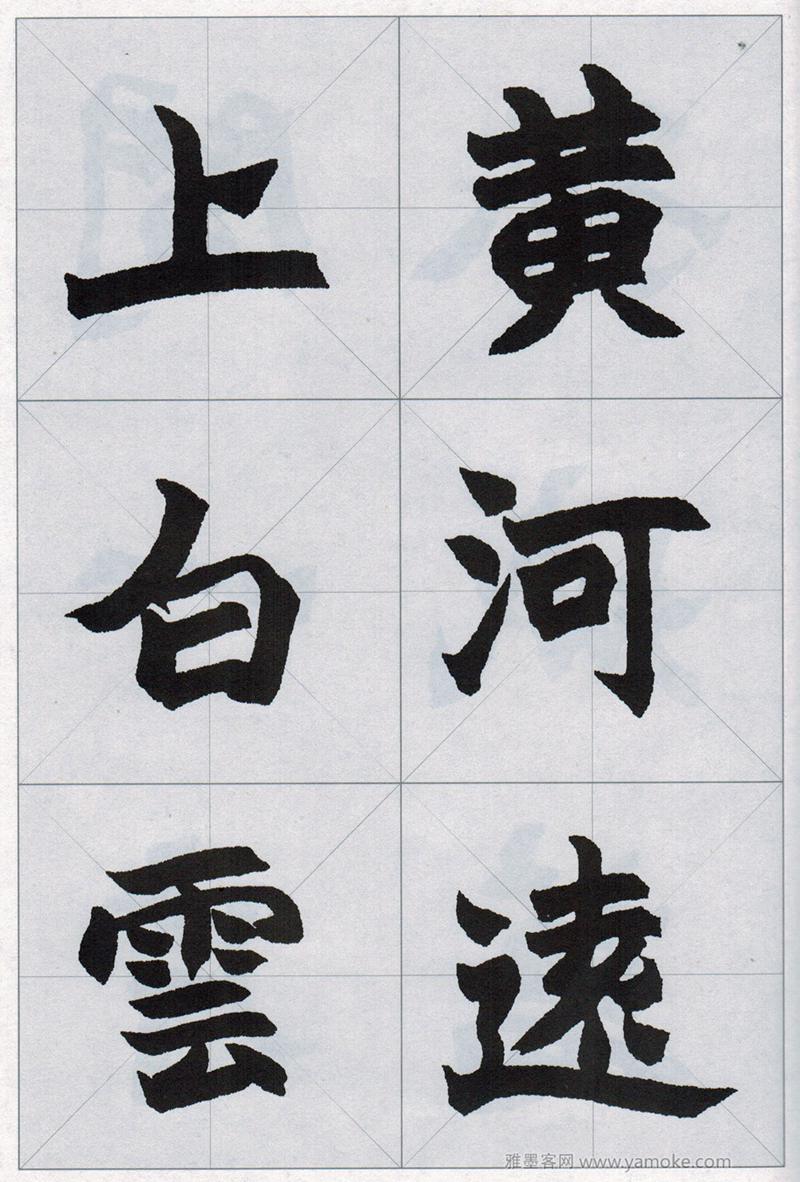 黄河遠
上白雲
雅墨客网 www.yamoke.com